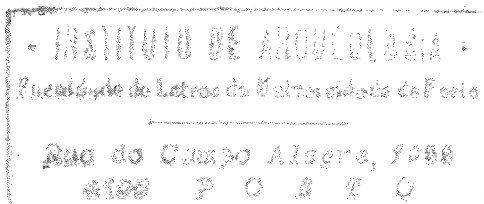 INSTITUTO DE ARQUEOLOGIA
Faculdade de Letras da Universidade do Porto
Rua do Campo Alegre,
4100 PORTO